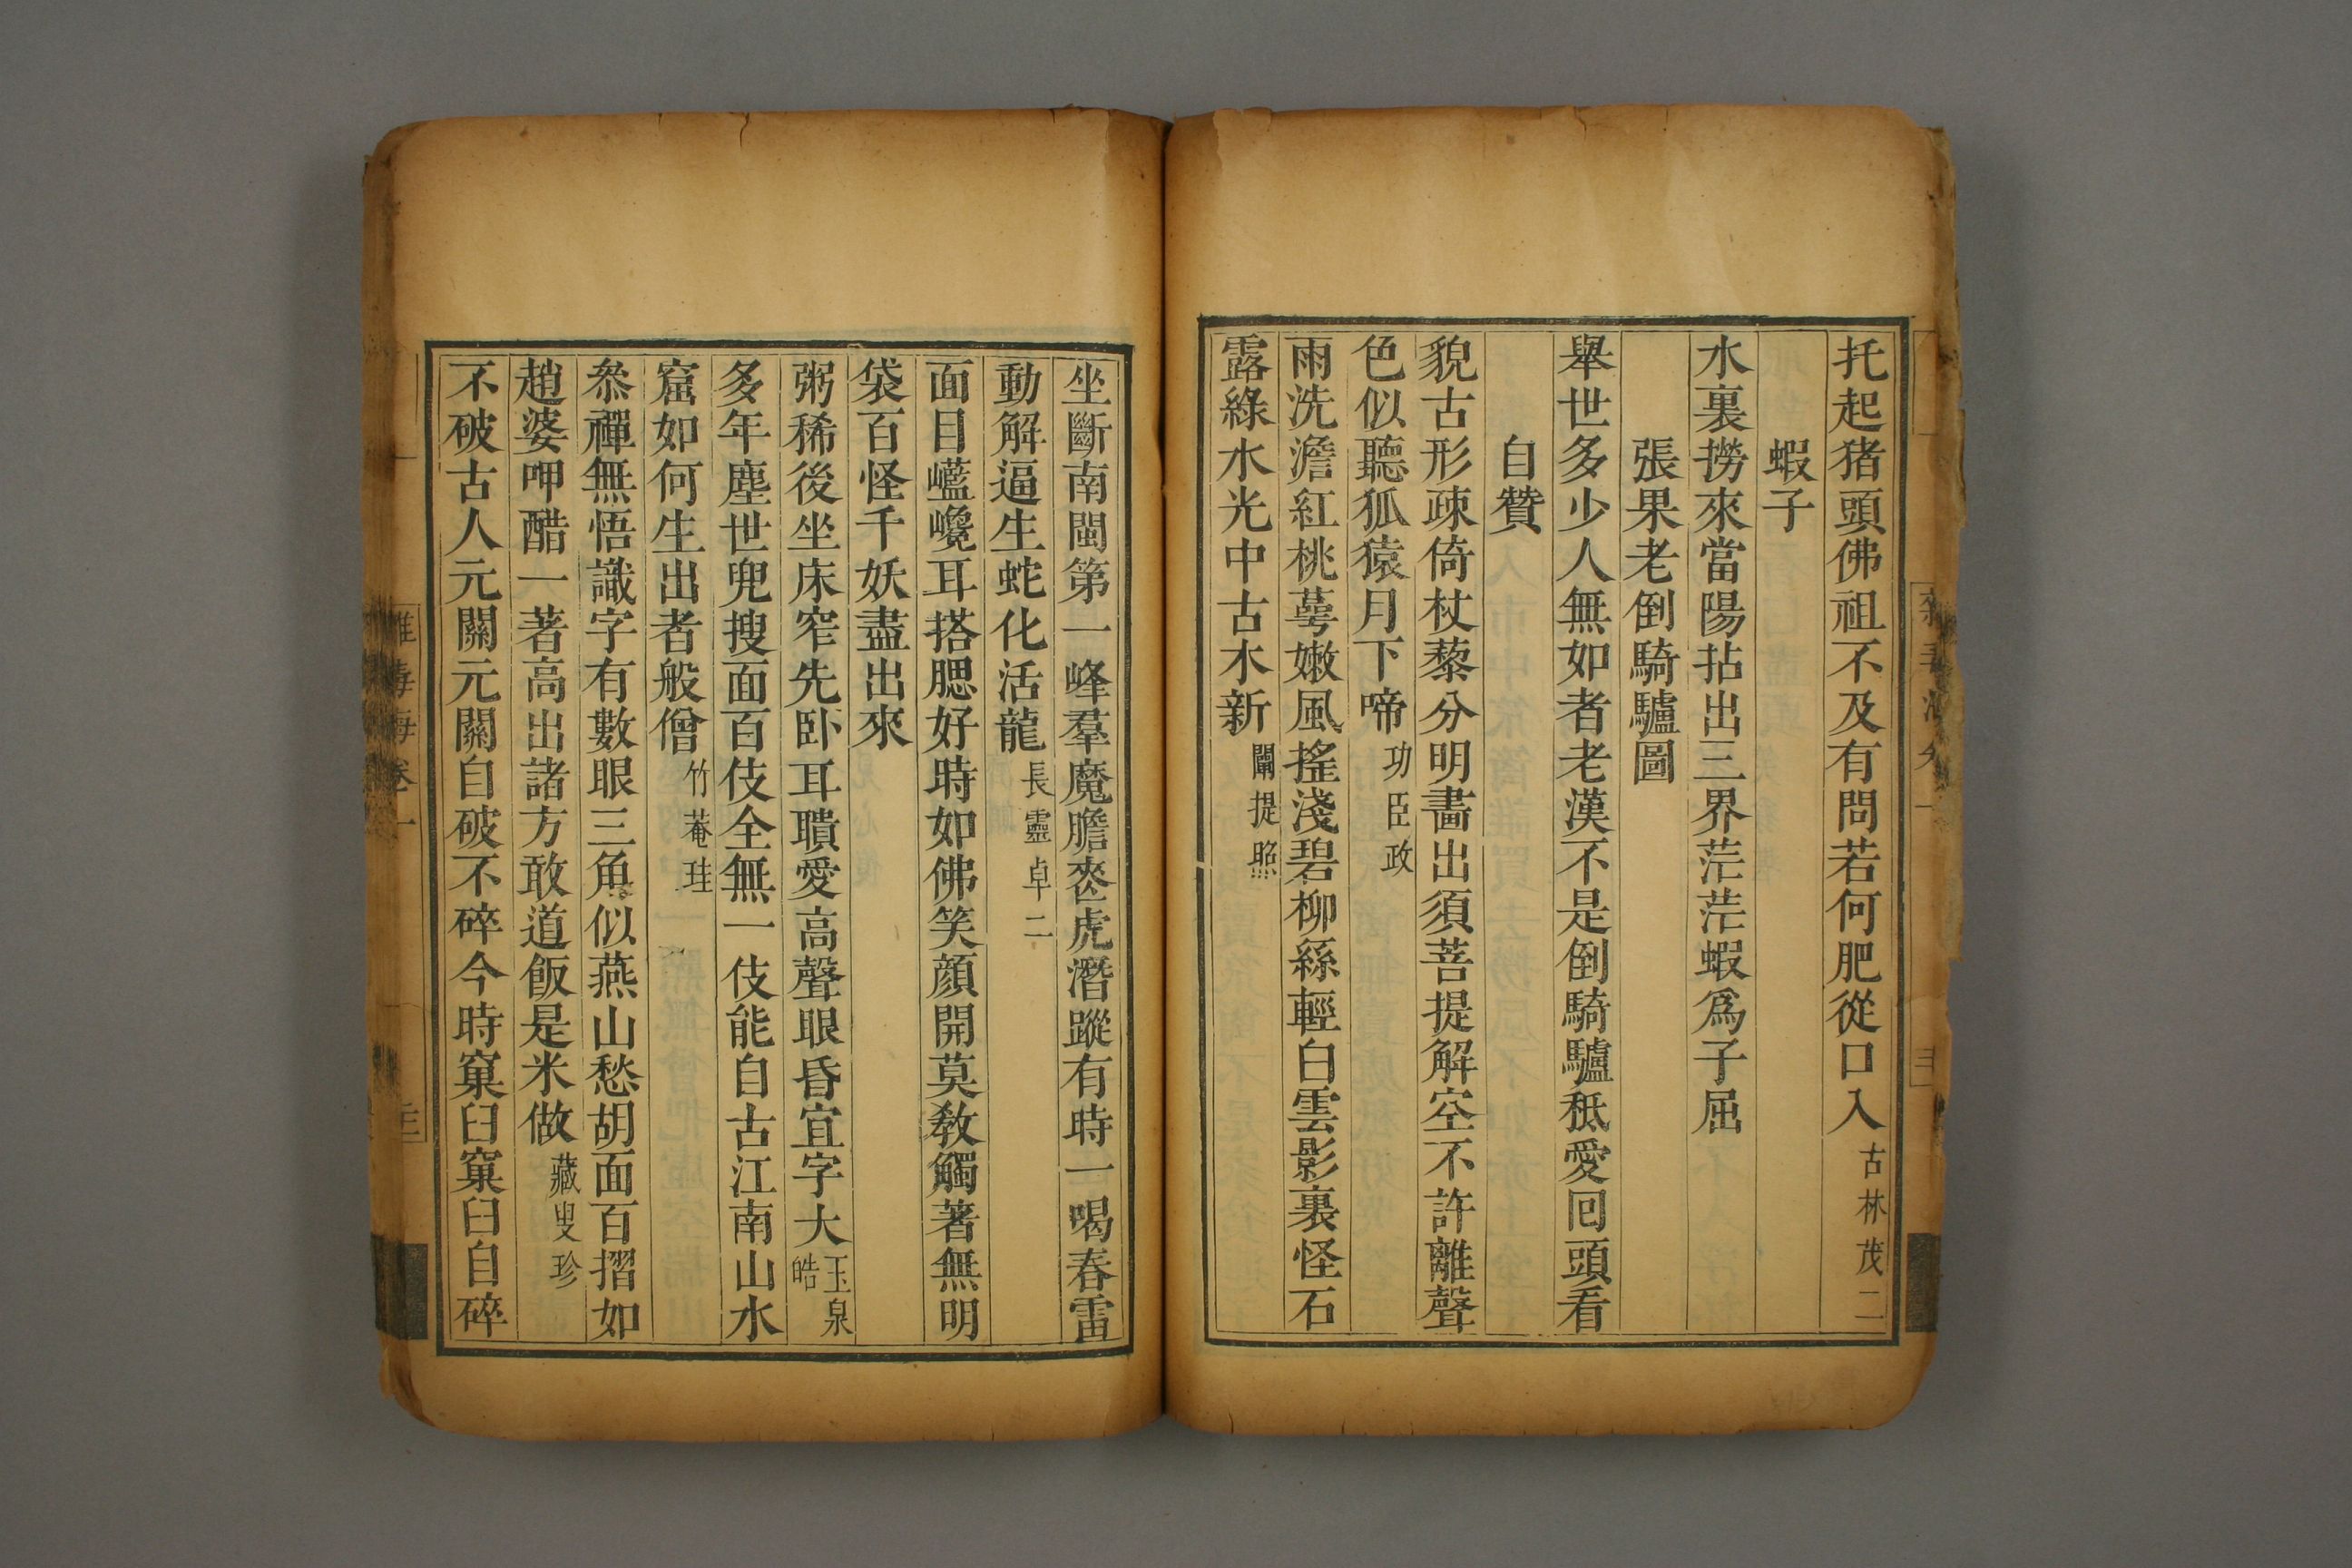 托起猪頭佛祖不及有問若何肥從口入古林茂二
蝦子
水裏撈來當陽拈出三界茫茫蝦爲子屈
張果老倒騎驢圖
舉世多少人無如者老漢不是倒騎驢秪愛回頭看
自贊
貌古形疎倚杖藜分明畵出須菩提解空不許離聲
色似聽狐猿月下啼功臣政
雨洗澹紅桃萼嫩風搖淺碧柳絲輕白雲影裏怪石
露綠水光中古木新闡提照
坐斷南閩第一峰羣魔膽喪虎潛蹤有時一喝春雷
動解逼生蛇化活龍長靈卓二
面目巉巉耳搭腮好時如佛笑顏開莫教觸著無明
袋百怪千妖盡出來
粥稀後坐床窄先卧耳聵愛高聲眼昏宜字大玉泉皓
多年塵世兜搜面百伎全無一伎能自古江南山水
窟如何生出者般僧竹菴珪
叅禪無悟識字有數眼三角似燕山愁胡面百摺如
趙婆呷醋一著高出諸方敢道飯是米做藏叟珍
不破古人元關元關自破不碎今時窠臼窠臼自碎
海卷一